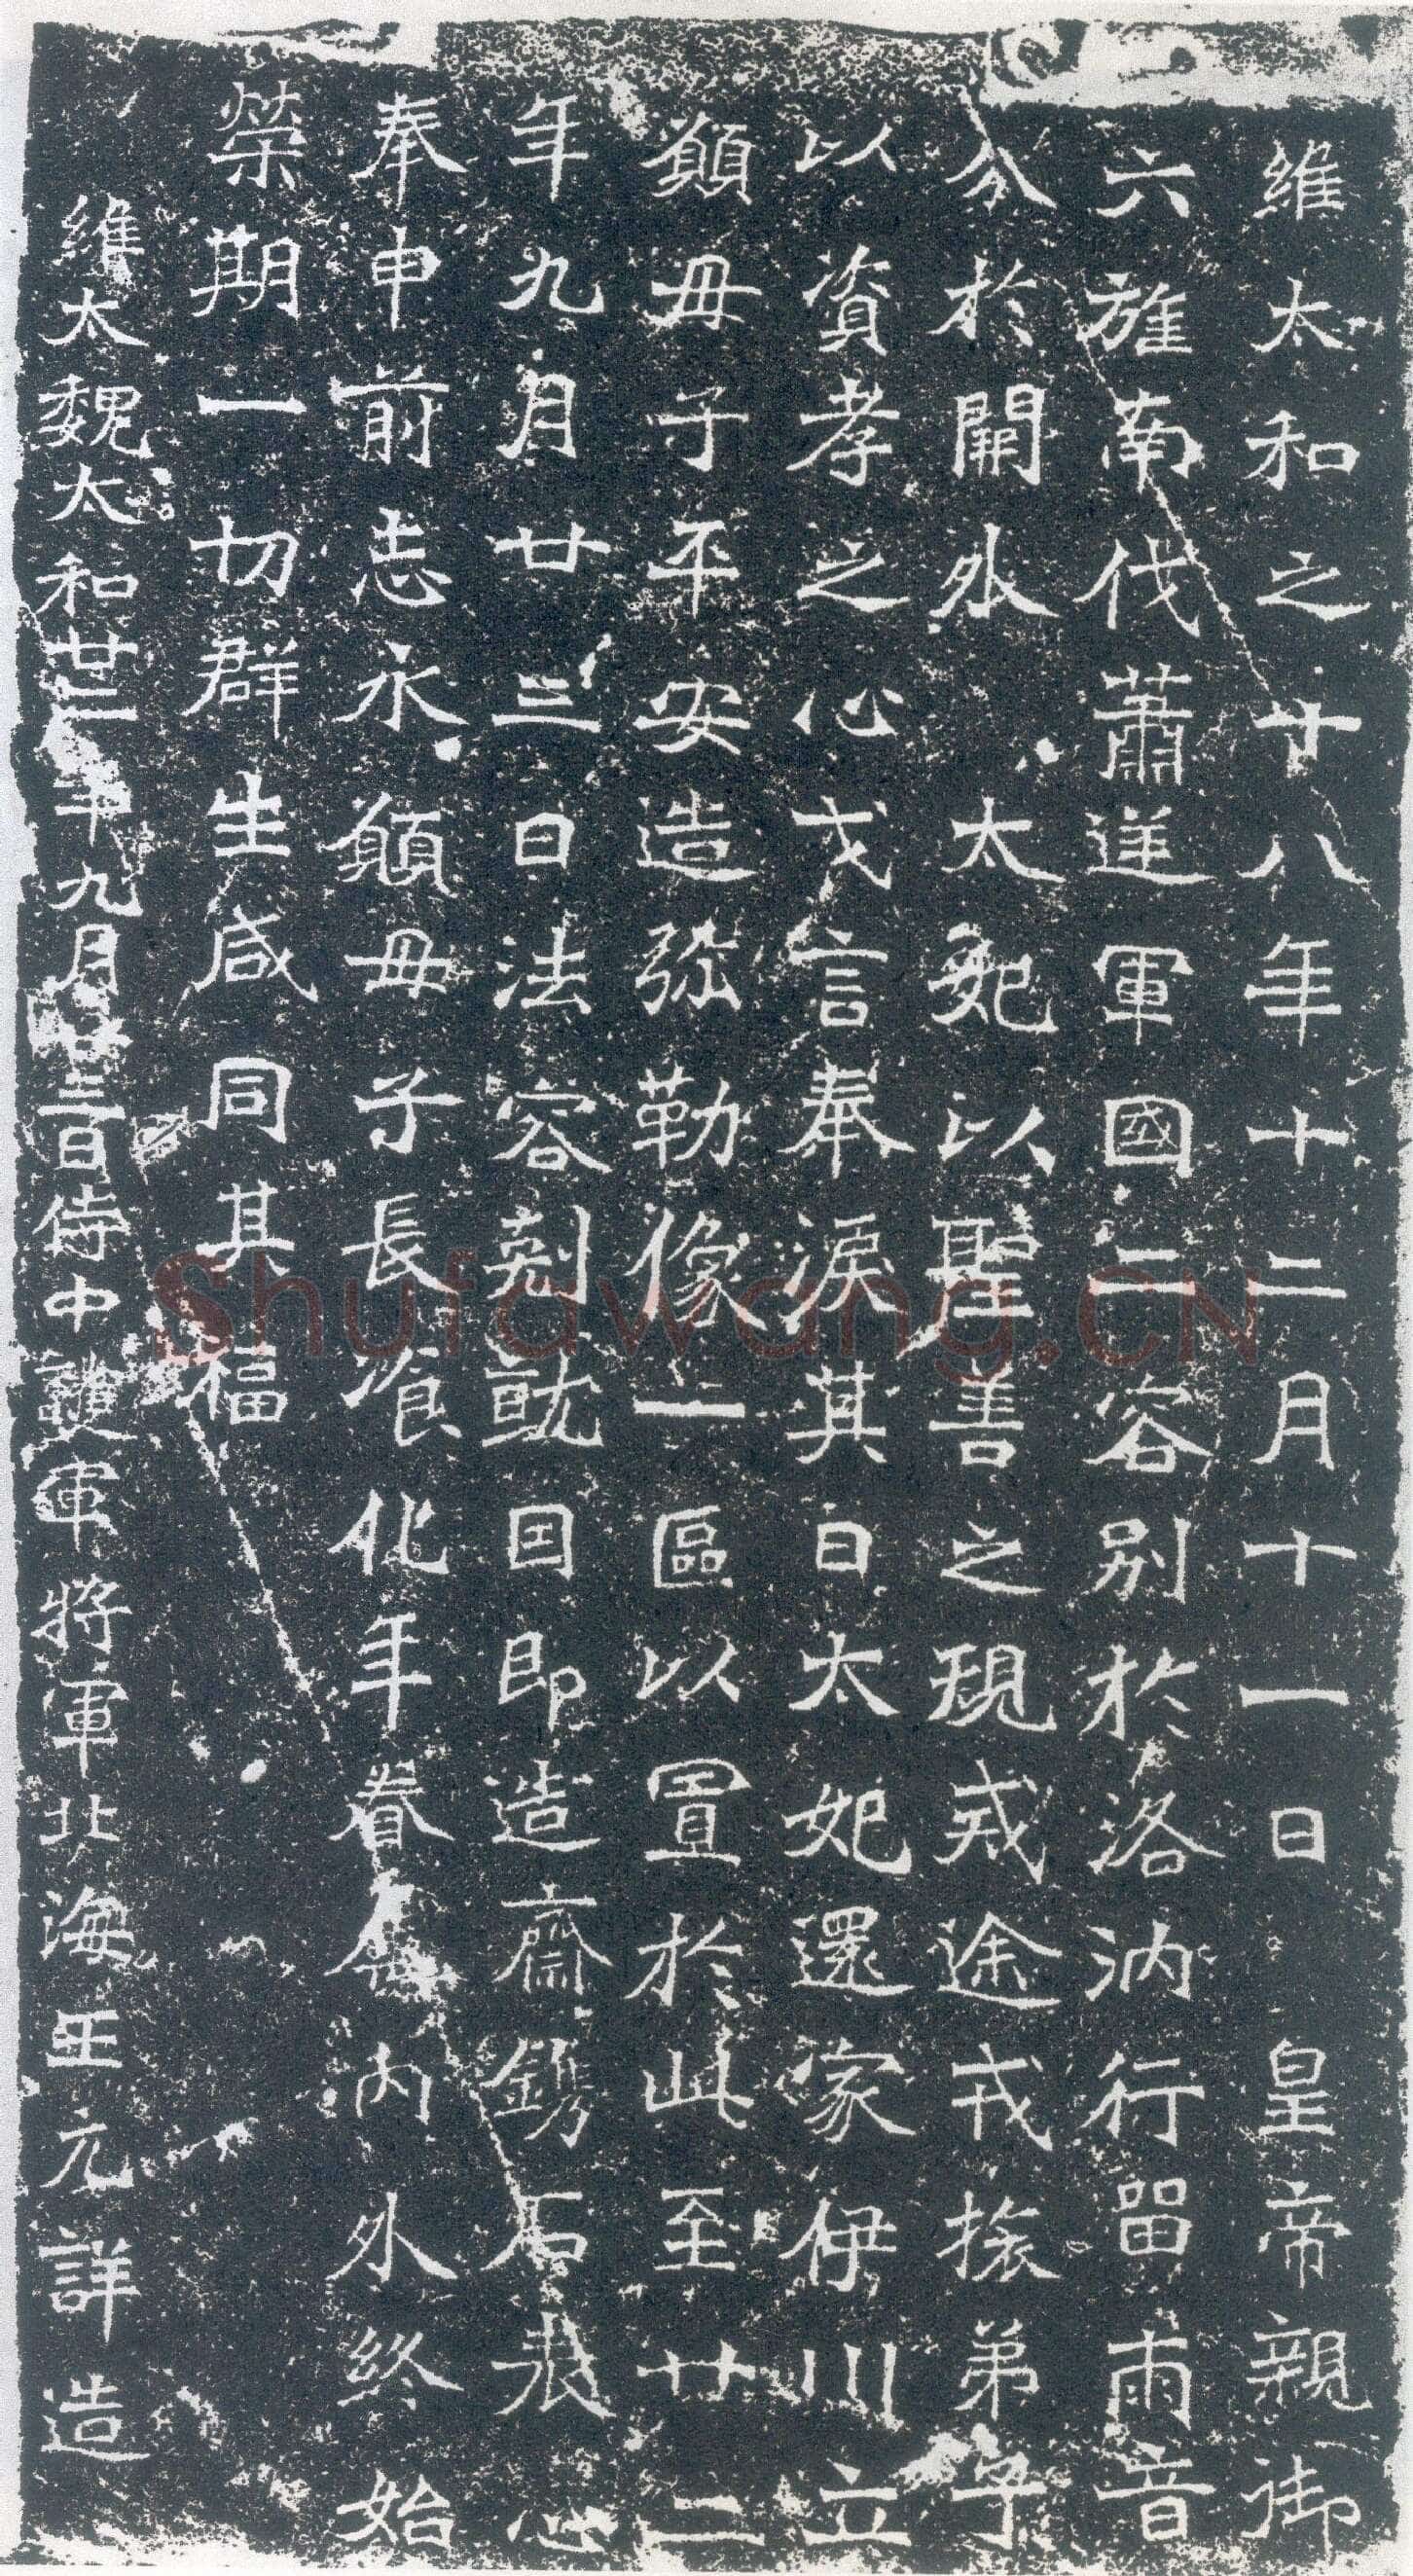 維太和之十八年十二月十一日 皇帝親御
六旌南伐蕭逆軍國二容別於洛汭行留兩音
分於關外太妃以聖善之規戒途戎旅弟子
以資孝之心戈言奉淚其日太妃還家伊川立
願母子平安造弥勒像一區以置於此至廿二
年九月廿三日法容剋就因即造齋鐫石表心
奉申前志永願母子長飡化年眷屬內外終始
榮期一切群生咸同其福
維太魏太和廿二年九月廿三日侍中護軍將軍北海王元詳造
Shufawang.CN